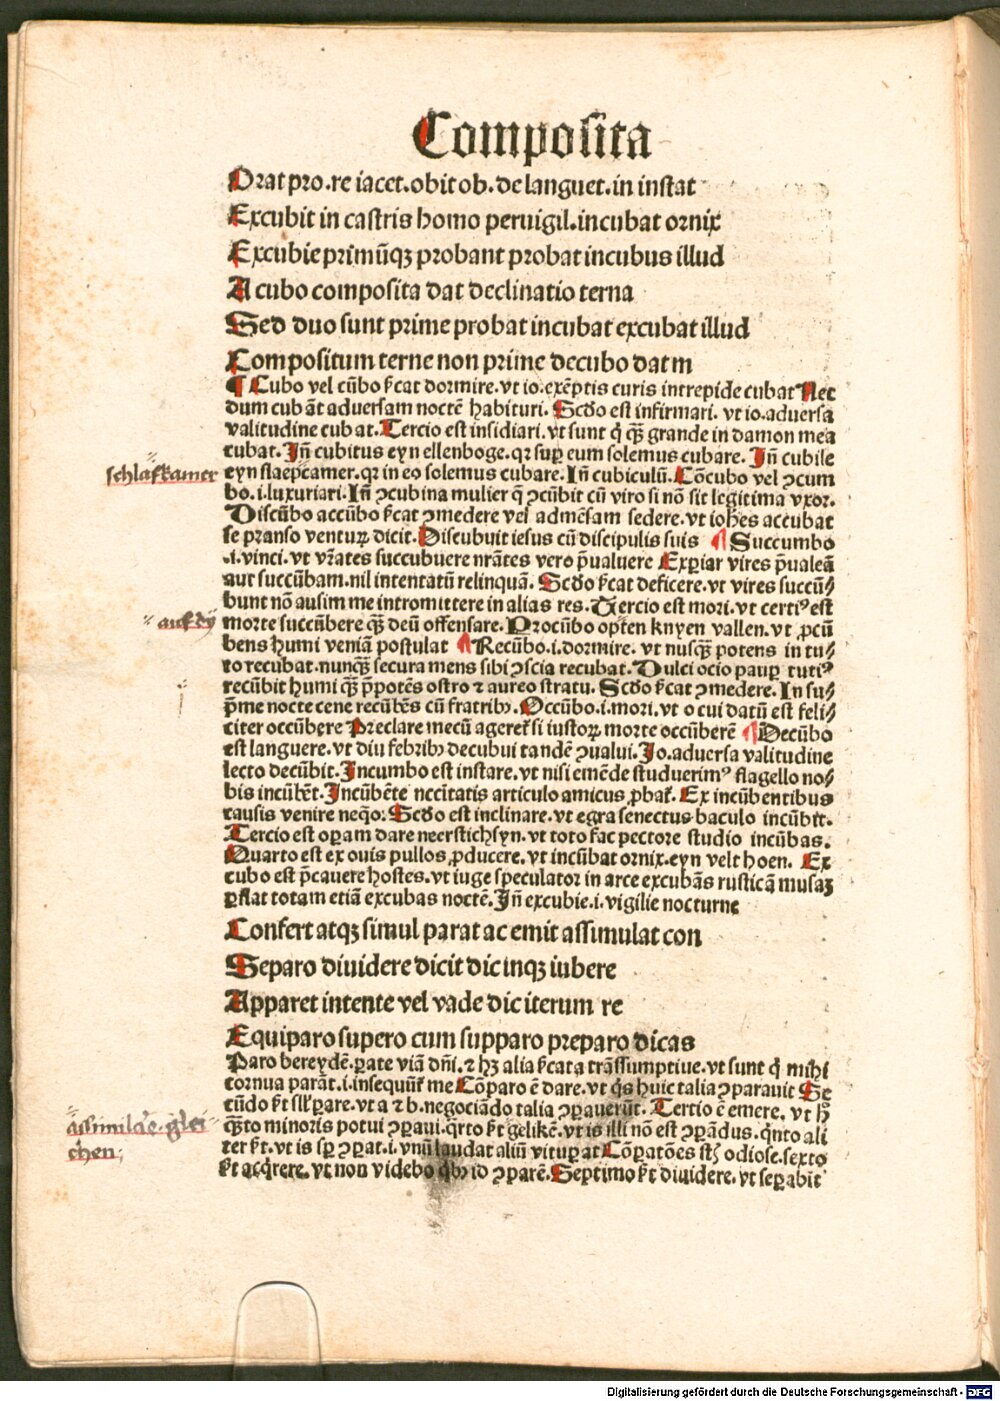 Composita
Orat pro.re iacet.obit ob.de languet.in instat
Excubit in castris homo peruigil.incubat ornix
Excubie primūqꝫ probant probat incubus illud
A cubo composita dat declinatio terna
Sed duo sunt prime probat incubat excubat illud
Compositum terne non prime decubo dat m
¶ Cubo vel cūbo ſcat dormire.vt io.exēptis curis intrepide cubat Nec
dum cubāt aduersam noctē habituri. Scdo est infirmari. vt io.aduersa
valitudine cubat.Tercio est insidiari.vt sunt q̄ qꝫ grande in damon mea
cubat.Jn̄ cubitus eyn ellenboge.qꝛ sup eum solemus cubare. Jn̄ cubile
schlafkamer eyn slaepcamer.qꝛ in eo solemus cubare.Jn̄ cubiculū.Cōcubo vel ɔcum
bo.i.luxuriari.Jn̄ ɔcubina mulier q̄ ɔcūbit cū viro si nō sit legitima vxor.
Discūbo accūbo ſcat ɔmedere vel ad mēsam sedere.vt iohēs accubat
se pranso venturꝫ dicit.Discubuit iesus cū discipulis suis ¶ Succumbo
.i.vinci.vt vr̄ates succubuere nr̄ates vero p̄ualuere Expiar vires p̄ualeā
aut succūbam.nil intentatū relinquā. Scdo ſcat deficere.vt vires succū⸗
bunt nō ausim me intromittere in alias res. Tercio est mori.vt certiꝰ est
auf dy morte succūbere qꝫ deū offensare.Procūbo opten knyen vallen.vt ꝓcū
bens humi veniā postulat ¶ Recūbo.i.dormire. vt nusqꝫ potens in tu⸗
to recubat.nunqꝫ secura mens sibi ɔscia recubat.Dulci ocio paup tutiꝰ
recūbit humi qꝫ p̄potēs ostro ⁊ aureo stratu. Scdo ſcat ɔmedere.Jn su⸗
p̄me nocte cene recūbēs cū fratribꝫ.Occūbo.i.mori.vt o cui datū est feli⸗
citer occūbere Preclare mecū ageret̄ si iustoꝝ morte occūberē ¶ Decūbo
est languere.vt diu febribꝫ decubui tandē ɔualui.Jo.aduersa valitudine
lecto decūbit.Jncumbo est instare.vt nisi emēde studuerimꝰ flagello no⸗
bis incūbēt.Jncūbēte nccītatis articulo amicus ꝓbat̄. Ex incūbentibus
causis venire neqo: Scdo est inclinare.vt egra senectus baculo incūbit.
Tercio est opam dare neerstich syn.vt toto fac pectore studio incūbas.
Quarto est ex ouis pullos ꝓducere.vt incūbat ornix.eyn velt hoen. Ex
cubo est p̄cauere hostes.vt iuge speculator in arce excubās rusticā musaꝫ
ꝑflat totam etiā excubas noctē.Jn̄ excubie.i.vigilie nocturne
Confert atqꝫ simul parat ac emit assimulat con
Separo diuidere dicit dic inqꝫ iubere
Apparet intente vel vade dic iterum re
Equiparo supero cum supparo preparo dicas
Paro bereydē.ꝑate viā dn̄i.⁊ hꝫ alia ſcata trāssumptiue.vt sunt q̄ mihi
cornua parāt.i.insequūt̄ me Cōparo ē dare.vt q̇s huic talia ɔparauit Se
cūdo ſt sīl ꝑare.vt a ⁊ b.negociādo talia ɔꝑauerūt. Tercio ē emere. vt hꝫ
assimilare.glei⸗ qꝫto minoris potui ɔꝑaui.q̄rto ſt gelikē.vt is illi nō est ɔꝑādus.q̄nto ali
chen; ter ſt.vt is sꝑ ɔꝑat.i.vnū laudat aliū vituꝑat Cōꝑatōes st̄ odiose.sexto
ſt acq̄rere.vt non videbo qbꝫ id ɔꝑarē.Septimo ſt diuidere.vt sepabit
Digitalisierung gefördert durch die Deutsche Forschungsgemeinschaft - DFG